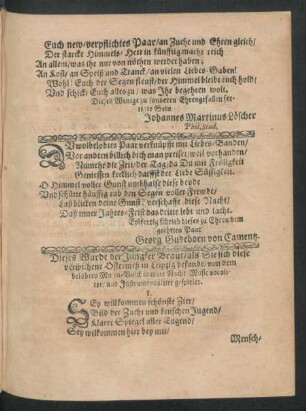 Euch new-verpflichtes Paar/ an Zucht und Ehren gleich/
Der starcke Himmels-Herr in künfftig mache reich
An allem/ was ihr nur von nöthen werdet haben;
An Kost/ an Speiß und Tranck/ an vielen Liebes-Gaben!
Wohl! Euch der Segen krauß/ der Himmel bleibe euch hold/
Und schick/ Euch alles zu/ was Ihr begehren wolt.
Dieses Wenige zu sonderen Ehrengefallen
setzte Sein
Johannes Martinus Löscher
Phil. Stud.
DU wolbelobtes Paar verknüpfft mit Liebes-Banden/
Vor andern billich dich man preiset/ weil vorhanden/
Nunmehr die Zeit/ der Tag/ da Du mit Fröligkeit
Geniessen kecklich darffst der Liebe Süssigkeit.
O Himmel voller Gunst umbhalse diese beyde
Und schütte häuffig rab den Segen voller Frewde/
Laß blicken deine Gunst/ verschaffe diese Nacht/
Daß immer Jahres-Frist das dritte lebt und lacht.
Eilfertig schrieb dieses zu Ehren dem
geehrten Paar
Georg Gudehorn von Camentz.
Dieses Wurde der Jungfer Braut/ als Sie sich diese
verwichene Ostermeß in Leipzig befande/ von dem
Music vocali-
ter und Instrumentaliter gespielet.
1.
SEy willkommen schönste Zier/
Bild der Zucht und keuschen Jugend/
Klarer Spiegel aller Tugend/
Sey wilkommen hier bey mir/
Mensch-